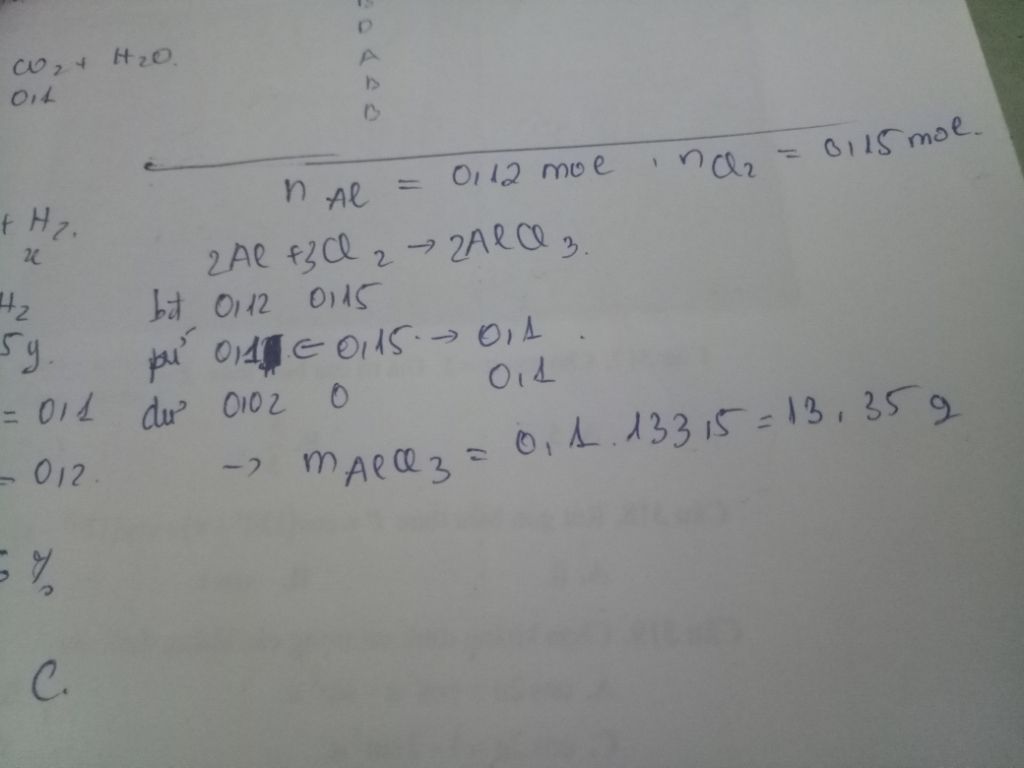 B
CO2 + H2O.
D
0,1
A
D
B
nAl = 0,12 mol , nCl2 = 0,15 mol.
+ H2.
x
2Al + 3Cl2 → 2AlCl3.
H2
bđ 0,12 0,15
5 y.
pứ 0,1 ← 0,15 → 0,1
= 0,1
dư 0,02 0 0,1
= 0,2.
→ mAlCl3 = 0,1 . 133,5 = 13,35 g
%
C.